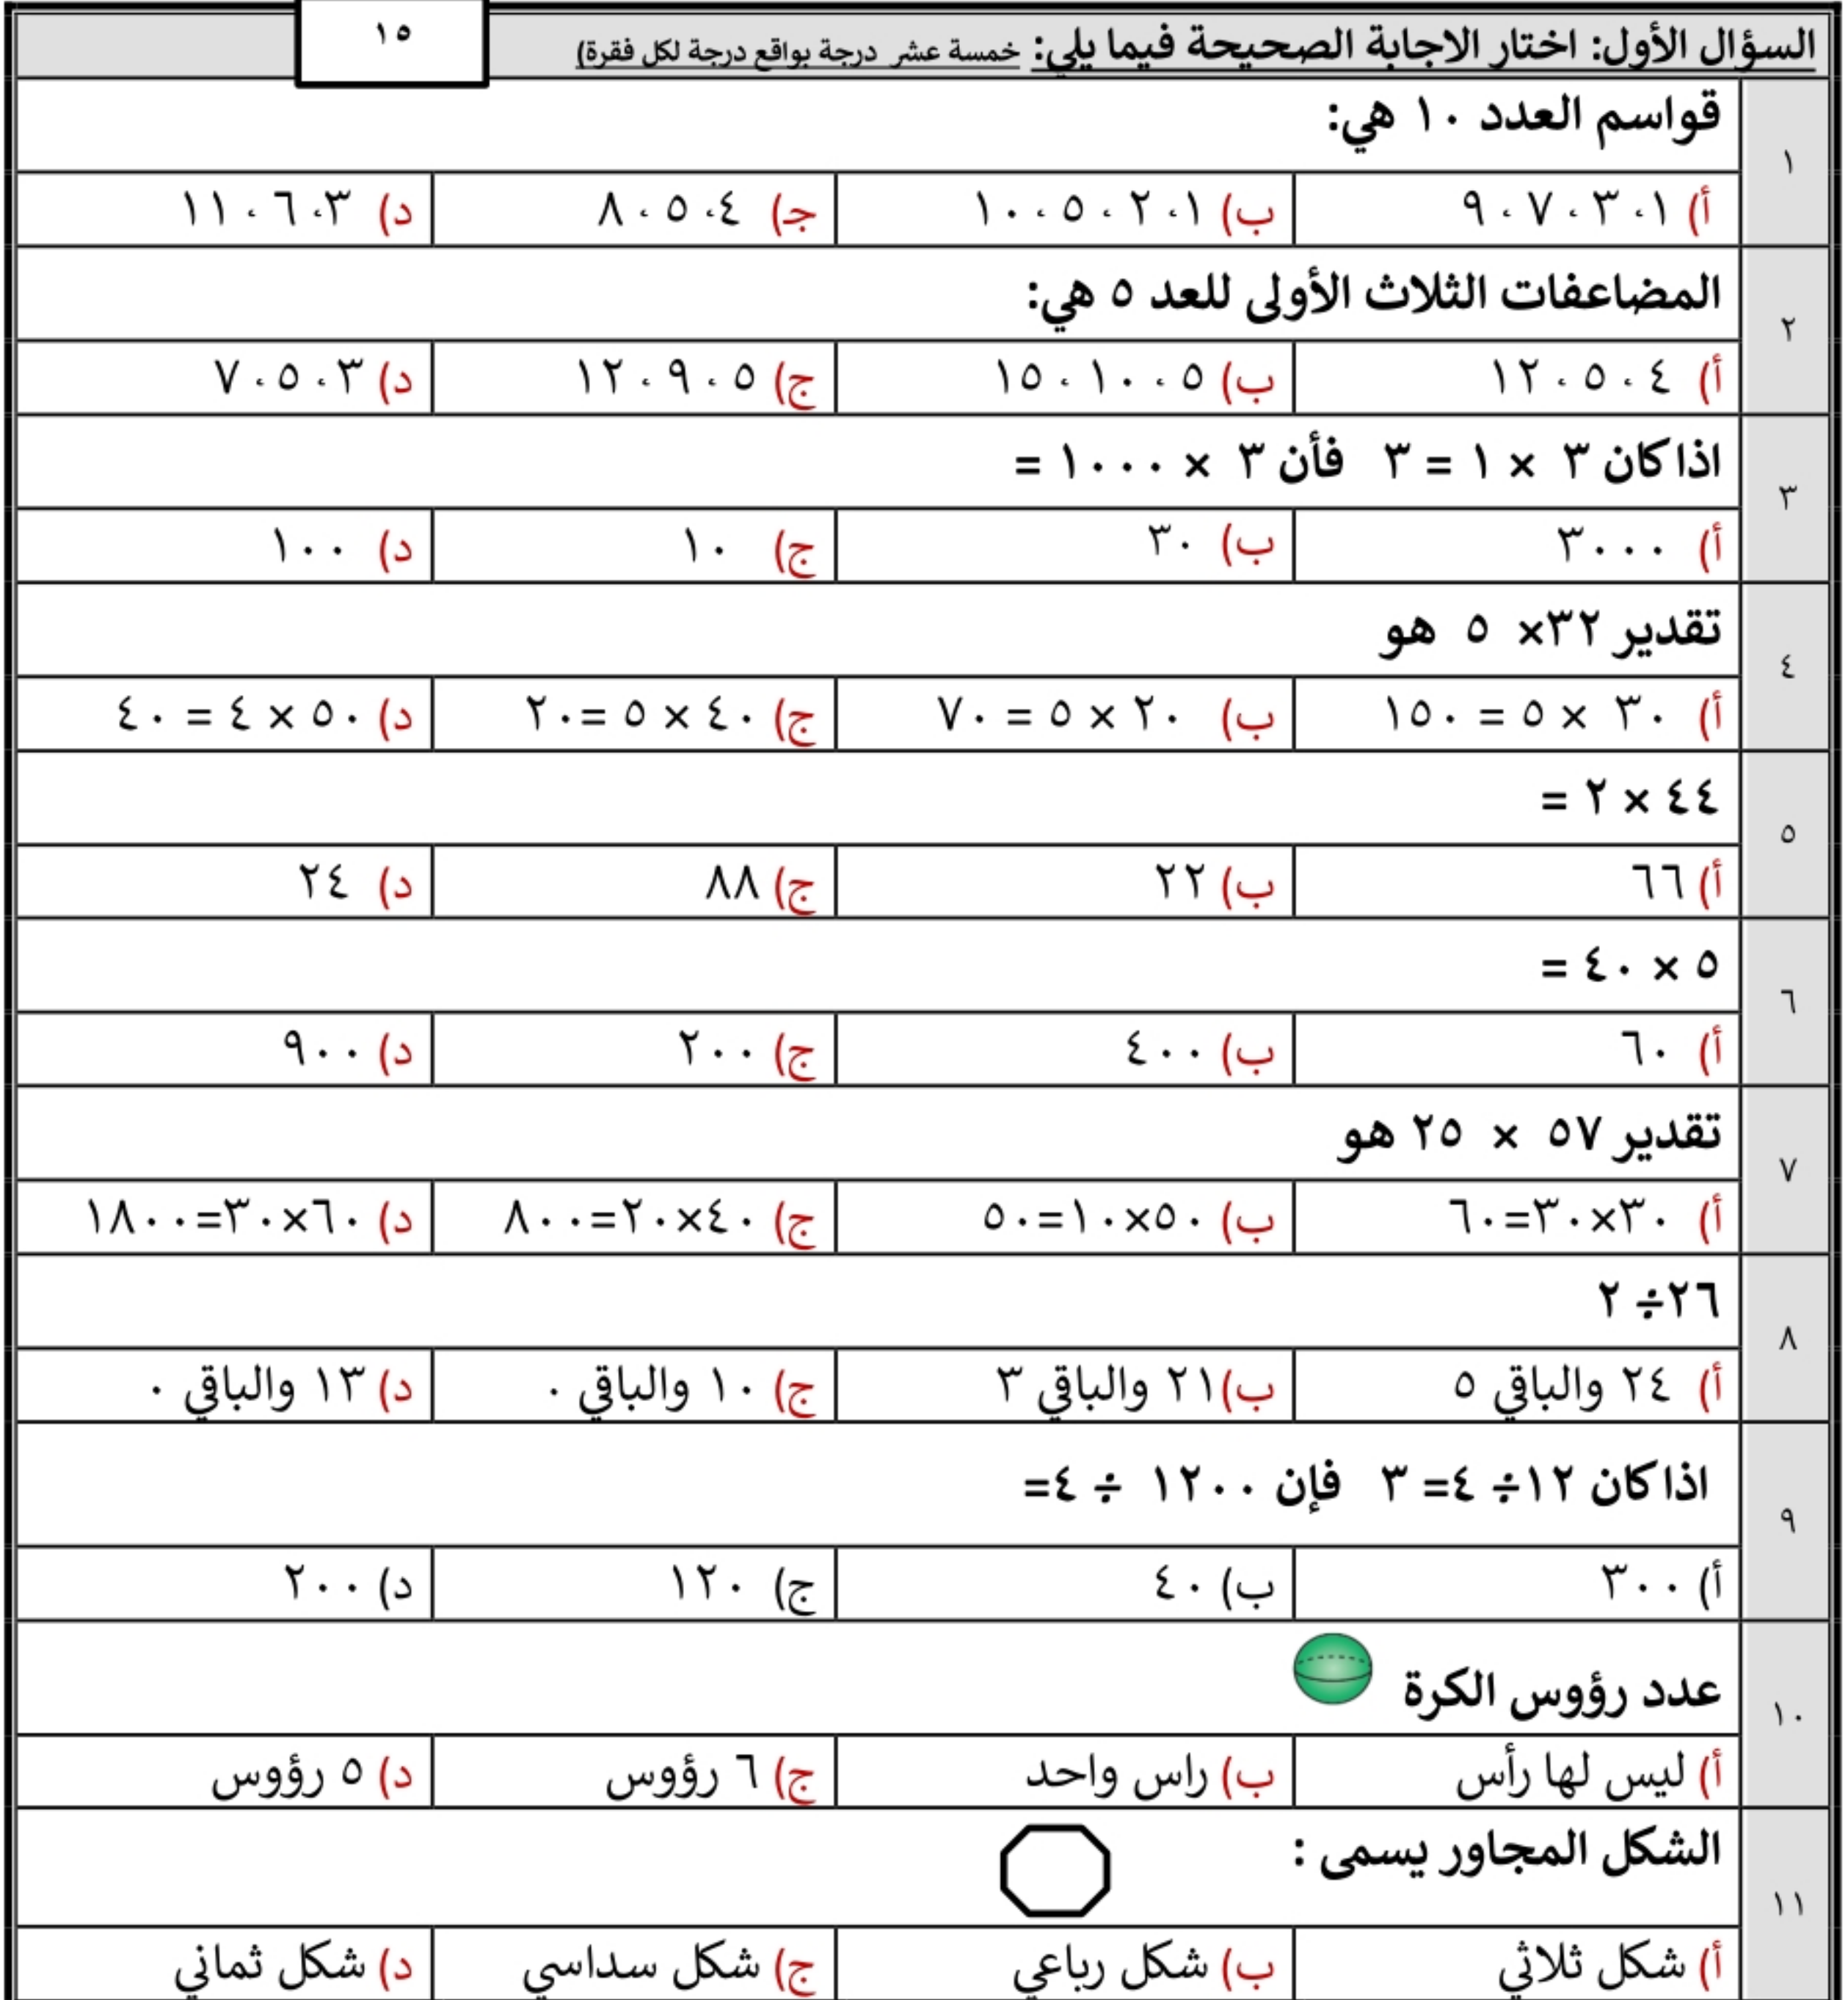 السؤال الأول: اختار الاجابة الصحيحة فيما يلي: خمسة عشر درجة بواقع درجة لكل فقرة)
١٥
١
قواسم العدد ١٠ هي:
أ) ١، ٣، ٧، ٩ ب) ١، ٢، ٥، ١٠ جـ) ٤، ٥، ٨ د) ٣، ٦، ١١
٢
المضاعفات الثلاث الأولى للعد ٥ هي:
أ) ٤، ٥، ١٢ ب) ٥، ١٠، ١٥ ج) ٥، ٩، ١٢ د) ٣، ٥، ٧
٣
اذا كان ٣ × ١ = ٣ فأن ٣ × ١٠٠٠ =
أ) ٣٠٠٠ ب) ٣٠ ج) ١٠ د) ١٠٠
٤
تقدير ٣٢× ٥ هو
أ) ٣٠ × ٥ = ١٥٠ ب) ٢٠ × ٥ = ٧٠ ج) ٤٠ × ٥ =٢٠ د) ٥٠ × ٤ = ٤٠
٥
٤٤ × ٢ =
أ) ٦٦ ب) ٢٢ ج) ٨٨ د) ٢٤
٦
٥ × ٤٠ =
أ) ٦٠ ب) ٤٠٠ ج) ٢٠٠ د) ٩٠٠
٧
تقدير ٥٧ × ٢٥ هو
أ) ٣٠×٣٠=٦٠ ب) ٥٠×١٠=٥٠ ج) ٤٠×٢٠=٨٠٠ د) ٦٠×٣٠=١٨٠٠
٨
٢٦÷ ٢
أ) ٢٤ والباقي ٥ ب)٢١ والباقي ٣ ج) ١٠ والباقي ٠ د) ١٣ والباقي ٠
٩
اذا كان ١٢÷ ٤= ٣ فإن ١٢٠٠ ÷ ٤=
أ) ٣٠٠ ب) ٤٠ ج) ١٢٠ د) ٢٠٠
١٠
عدد رؤوس الكرة
أ) ليس لها رأس ب) راس واحد ج) ٦ رؤوس د) ٥ رؤوس
١١
الشكل المجاور يسمى :
أ) شكل ثلاثي ب) شكل رباعي ج) شكل سداسي د) شكل ثماني